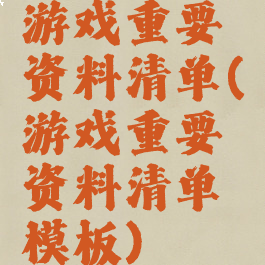 游戏重要
资料清单(
游戏重要
资料清单
模板)